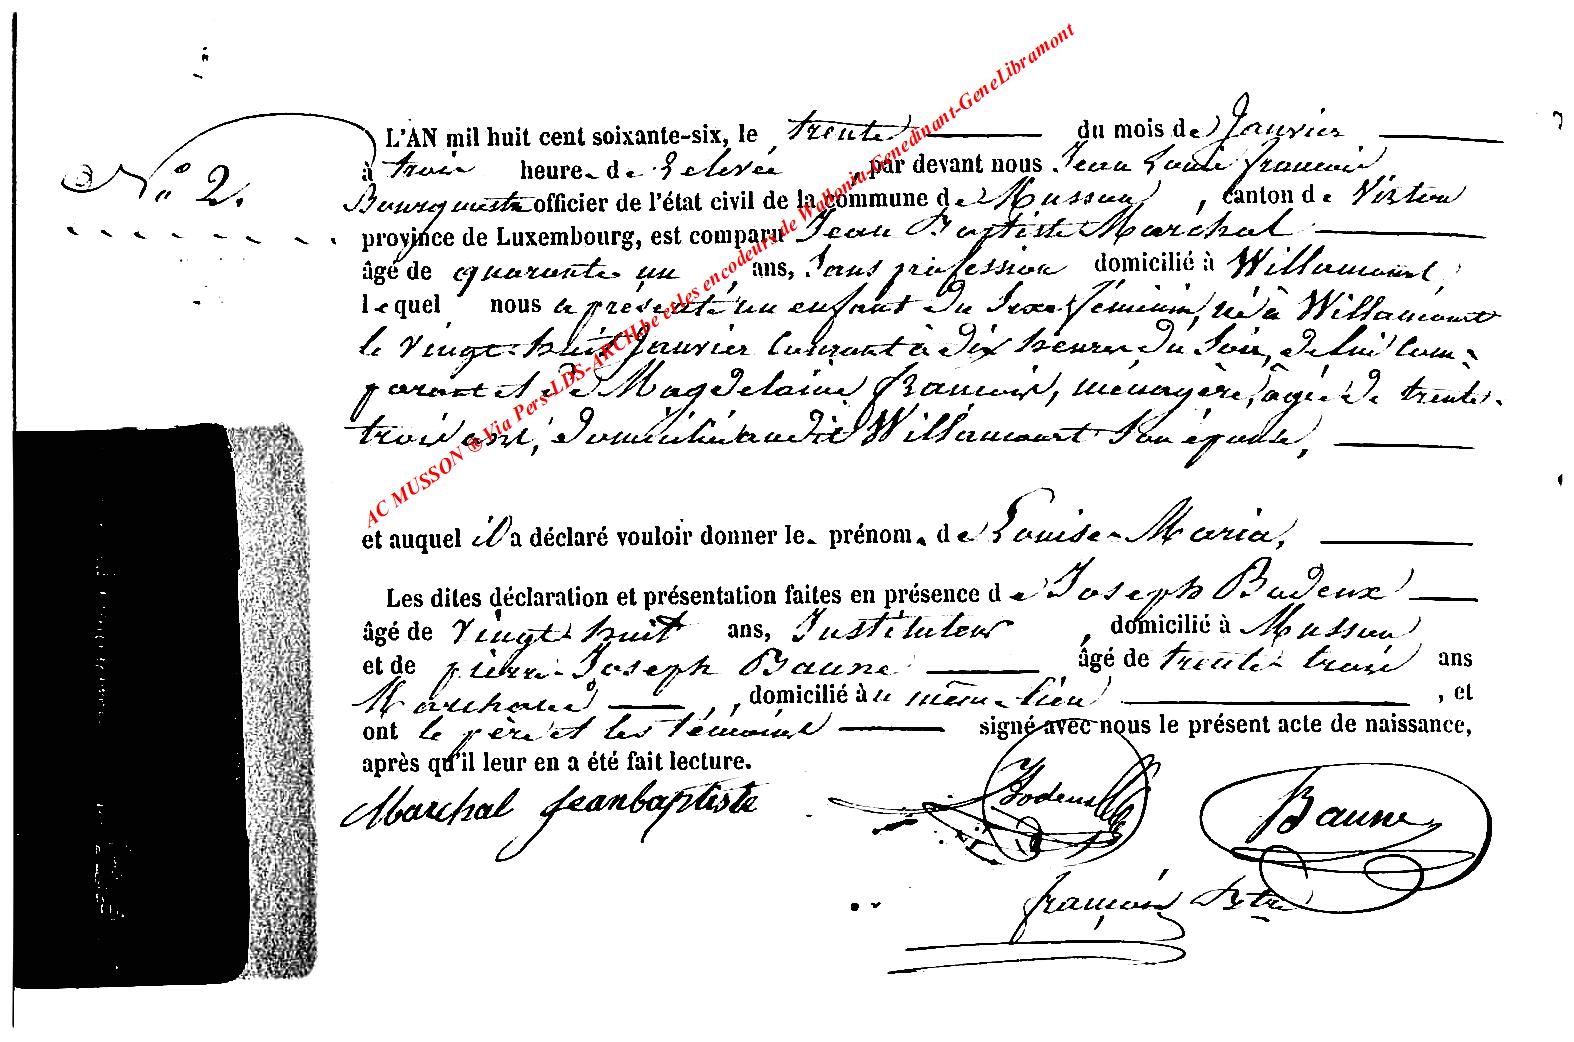 N° 2.
L'AN mil huit cent soixante-six, le trente du mois de Janvier
à trois heure de relevée, par devant nous Jean Louis françois
officier de l'état civil de la commune de Musson, canton de Virton
province de Luxembourg, est comparu Jean Baptiste Maréchal
âgé de quarante un ans, sans profession domicilié à Willancourt,
lequel nous a présenté un enfant du sexe féminin, né à Willancourt
le vingt-huit Janvier courant à dix heures du soir, de lui com-
parant et de Magdelaine françois, ménagère, âgée de trente-
trois ans, domiciliée audit Willancourt son épouse,
et auquel il a déclaré vouloir donner le prénom de Louise-Maria,
Les dites déclaration et présentation faites en présence de Joseph Bodeux
âgé de vingt-huit ans, Instituteur, domicilié à Musson
et de pierre-Joseph Baune âgé de trente-trois ans
Marchand, domicilié au même lieu, et
ont le père et les témoins signé avec nous le présent acte de naissance,
après qu'il leur en a été fait lecture.
Marchal jeanbaptiste
Bodeux
Baune
françois
AC MUSSON ® Via Pers-LDS-ARCH.be et les encodeurs de Wallonia-Genedinant-GeneLibramont